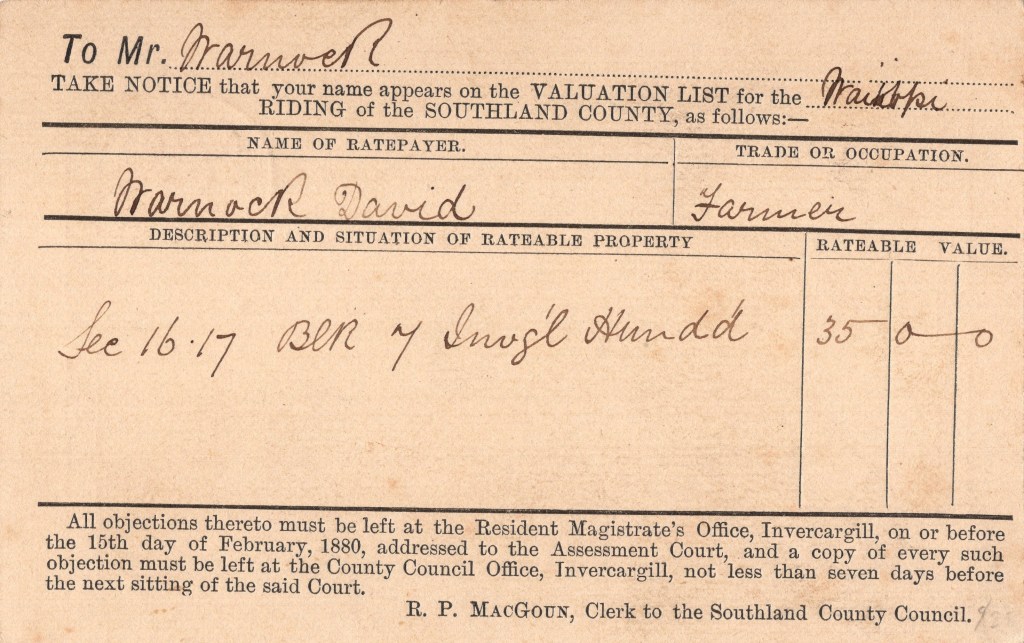 To Mr. Warnock
TAKE NOTICE that your name appears on the VALUATION LIST for the Waihopi
RIDING of the SOUTHLAND COUNTY, as follows:—
NAME OF RATEPAYER. TRADE OR OCCUPATION.
Warnock David Farmer
DESCRIPTION AND SITUATION OF RATEABLE PROPERTY RATEABLE VALUE.
Sec 16.17 Blk 7 Invg'l Hund'd 35 0 0
All objections thereto must be left at the Resident Magistrate's Office, Invercargill, on or before
the 15th day of February, 1880, addressed to the Assessment Court, and a copy of every such
objection must be left at the County Council Office, Invercargill, not less than seven days before
the next sitting of the said Court.
R. P. MACGOUN, Clerk to the Southland County Council.